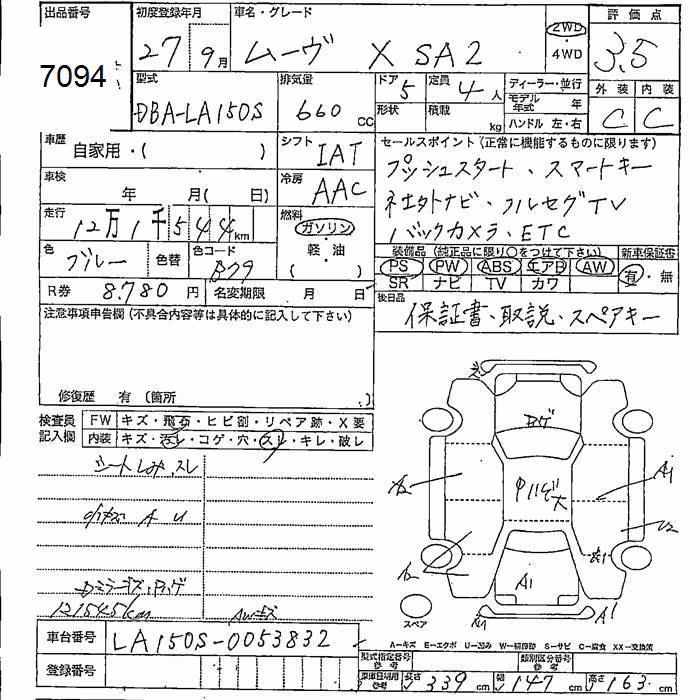 出品番号 7094
初度登録年月 27年 9月
車名・グレード ムーヴ X SA2
2WD ・ 4WD
評価点 3.5
外装 C 内装 C
型式 DBA-LA150S
排気量 660 CC
ドア 5 定員 4人
形状 積載 kg
ディーラー・並行
モデル年式 年
ハンドル 左・右
車歴 自家用・( )
シフト IAT
車検 年 月( 日)
冷房 AAC
走行 12万1千544km
燃料 ガソリン・軽・油 ( )
色 ブルー 色替 色コード B79
R券 8.780円 名変期限 月 日
セールスポイント(正常に機能するものに限ります)
プッシュスタート、スマートキー
社外ナビ、フルセグTV
バックカメラ、ETC
装備品(純正品に限り○をつけて下さい)
PS PW ABS エアB AW
SR ナビ TV カワ
新車保証書 有・無
後日品 保証書、取説、スペアキー
注意事項申告欄(不具合内容等は具体的に記入して下さい)
修復歴 有(箇所
検査員記入欄
FW キズ・飛石・ヒビ割・リペア跡・X要
内装 キズ・汚レ・コゲ・穴・スレ・キレ・破レ
シートしみ、スレ
小キズ A U
121545km
AWキズ
A2
A1
U2
A1
A1
スペア
A=キズ E=エクボ U=凹み W=補修跡 S=サビ C=腐食 XX=交換済
車台番号 LA150S-0053832
登録番号
型式指定番号 参考
類別区分番号 参考
長さ 339cm 幅 147cm 高さ 163cm